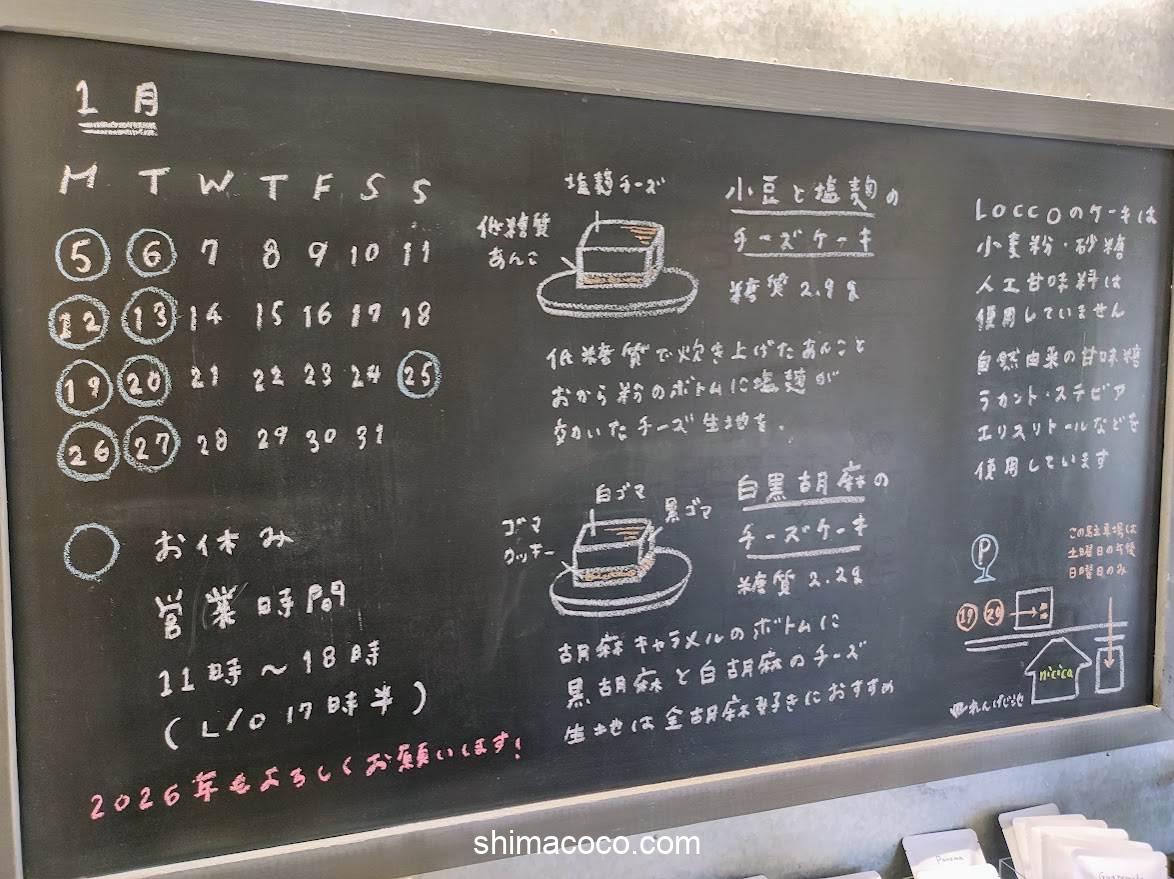 1月
M T W T F S S
5 6 7 8 9 10 11
12 13 14 15 16 17 18
19 20 21 22 23 24 25
26 27 28 29 30 31
お休み
営業時間
11時～18時
(L/O 17時半)
2026年もよろしくお願いします!
塩麹チーズ
低糖質
あんこ
小豆と塩麹の
チーズケーキ
糖質 2.9g
低糖質で炊き上げたあんこと
おから粉のボトムに塩麹が
効いたチーズ生地を。
白ゴマ
黒ゴマ
ゴマ
クッキー
白黒胡麻の
チーズケーキ
糖質 2.2g
胡麻キャラメルのボトムに
黒胡麻と白胡麻のチーズ
生地は全胡麻好きにおすすめ
LOCCOのケーキは
小麦粉・砂糖
人工甘味料は
使用していません
自然由来の甘味糖
ラカント・ステビア
エリスリトールなどを
使用しています
P
この駐車場は
土曜日の午後
日曜日のみ
19 20
nicica
れんげじ
shimacoco.com
Panama
Guatemala